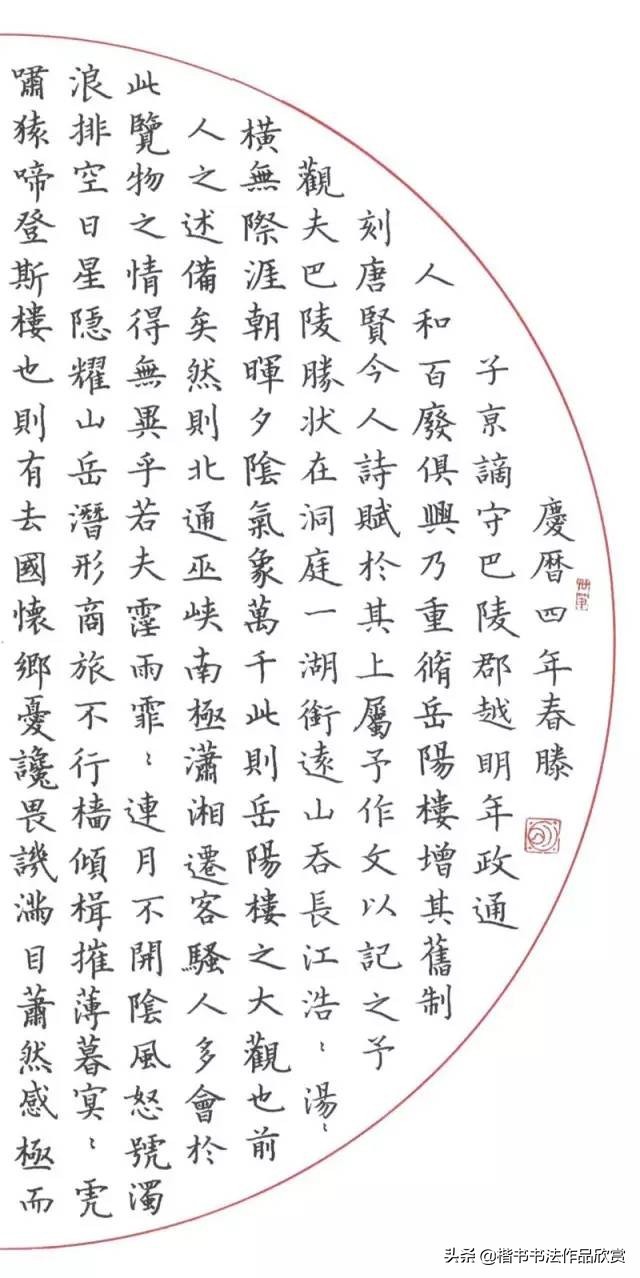 慶曆四年春滕
子京謫守巴陵郡越明年政通
人和百廢俱興乃重脩岳陽樓增其舊制
刻唐賢今人詩賦於其上屬予作文以記之予
觀夫巴陵勝狀在洞庭一湖銜遠山吞長江浩〻湯〻
橫無際涯朝暉夕陰氣象萬千此則岳陽樓之大觀也前
人之述備矣然則北通巫峽南極瀟湘遷客騷人多會於
此覽物之情得無異乎若夫霪雨霏〻連月不開陰風怒號濁
浪排空日星隱耀山岳潛形商旅不行檣傾楫摧薄暮冥〻虎
嘯猿啼登斯樓也則有去國懷鄉憂讒畏譏滿目蕭然感極而
头条@楷书书法作品欣赏